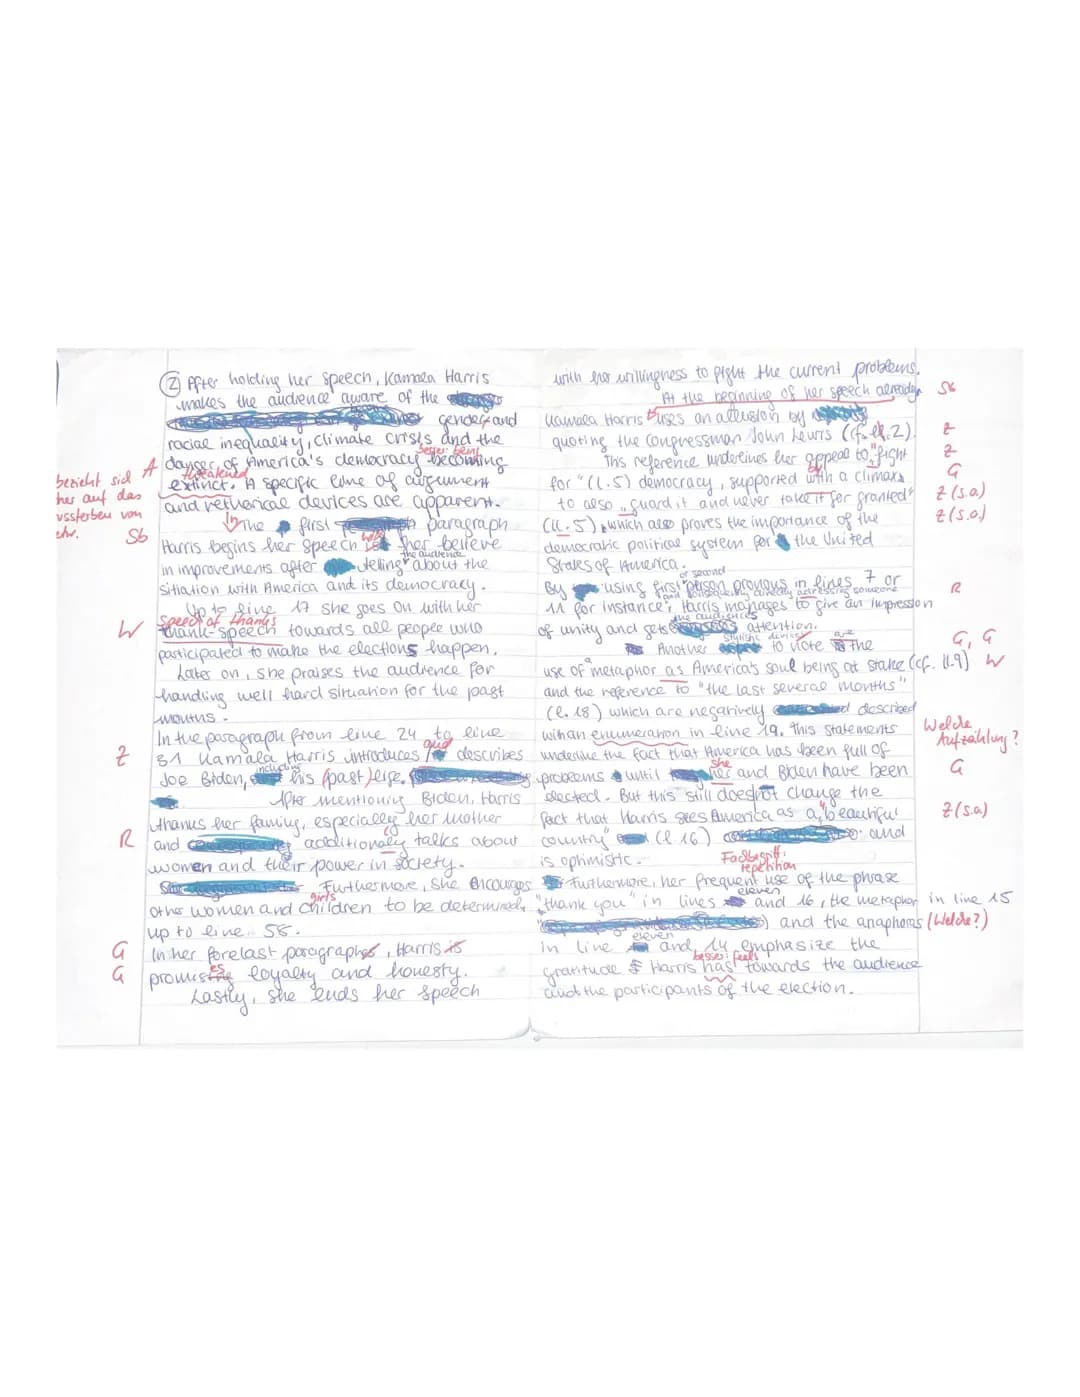 ② After holding her speech, Kamala Harris
makes the audience aware of the
gender and
racial inequality, climate crisis and the
besser: being
danger of America's democracy becoming
threatened
extinct. A specific line of argument
and rethorical devices are apparent.
bezieht sich A
eher auf das
Aussterben von
Sb
In The first paragraph
Harris begins her speech with her believe
the audience
in improvements after telling about the
sitiation with America and its democracy.
Up to line 17 she goes on with her
speech of thanks
W thank-speech towards all people who
participated to make the elections happen.
Later on, she praises the audience for
handling well hard situation for the past
months.
In the paragraph from line 24 to line
Z 31 Kamala Harris introduces and describes
including
Joe Biden, his (past) life.
After mentioning Biden, Harris
thanks her family, especially her mother
R and additionaly talks about
women and their power in society.
Furthermore, she encourages
girls
other women and children to be determined,
up to line 58.
G In her forelast paragraphs, Harris is
G promises loyalty and honesty.
Lastly, she ends her speech
with her willingness to fight the current problems.
At the beginning of her speech already Sb
Kamala Harris uses an allusion by
quoting the Congressman John Lewis (cf. ll. 2). Z
This reference underlines her appeal to "fight Z
for" (l. 5) democracy, supported with a climax G
by
to also "guard it and never take it for granted" Z (s.o.)
(ll. 5), which also proves the importance of the Z (s.o.)
democratic political system for the United
States of America.
or second
By using first person pronous in lines 7 or R
and consequently directly adressing someone
11 for instance, Harris manages to give an impression
the audience's
of unity and gets attention.
stylistic device are
Another to note is the G, G
use of a metaphor as America's soul being at stake (cf. ll. 9) W
and the reference to "the last several months"
(l. 18) which are negatively described
with an enumeration in line 19. This statements Welche Aufzählung?
underline the fact that America has been full of
she
problems until her and Biden have been G
elected. But this still does not change the
fact that Harris sees America as a "beautiful Z (s.o)
country" (l. 16) and
is optimistic.
Fachbegriff:
repetition
Furthermore, her frequent use of the phrase
eleven
"thank you" in lines and 16, the metaphor in line 15
and the anaphoras (Welche?)
eleven
in line and 14 emphasize the
besser: feels
gratitude Harris has towards the audience
and the participants of the election.